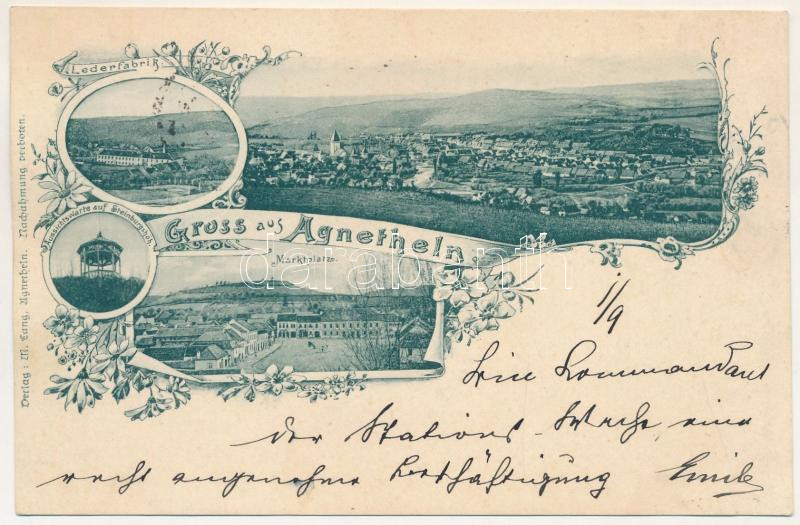 Lederfabrik
Aussichtswarte auf Steinburghöh.
Gruss aus Agnetheln.
Marktplatz.
darabanth
Verlag: M. Lang, Agnetheln. Nachahmung verboten.
1/9
Bin Kommandant
der Stations-Wache, eine
recht angenehme Beschäftigung Emil